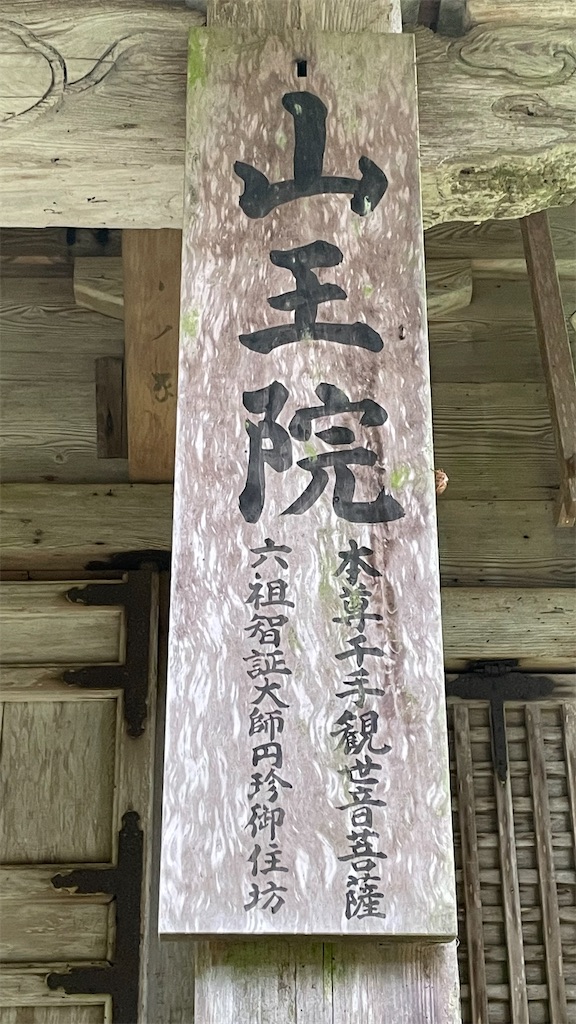 山王院
本尊千手観世音菩薩
六祖智証大師円珍御住坊